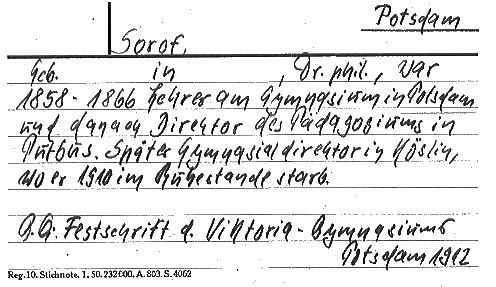 Potsdam
Sorof,
Geb. in , Dr. phil., war
1858 - 1866 Lehrer am Gymnasium in Potsdam
und danach Direktor des Pädagogiums in
Putbus. Später Gymnasialdirektor in Köslin,
wo er 1910 im Ruhestande starb.
Festschrift d. Viktoria-Gymnasiums
Potsdam 1912
Reg. 10. Stichnote. 1. 50. 232000. A. 803. S. 4062